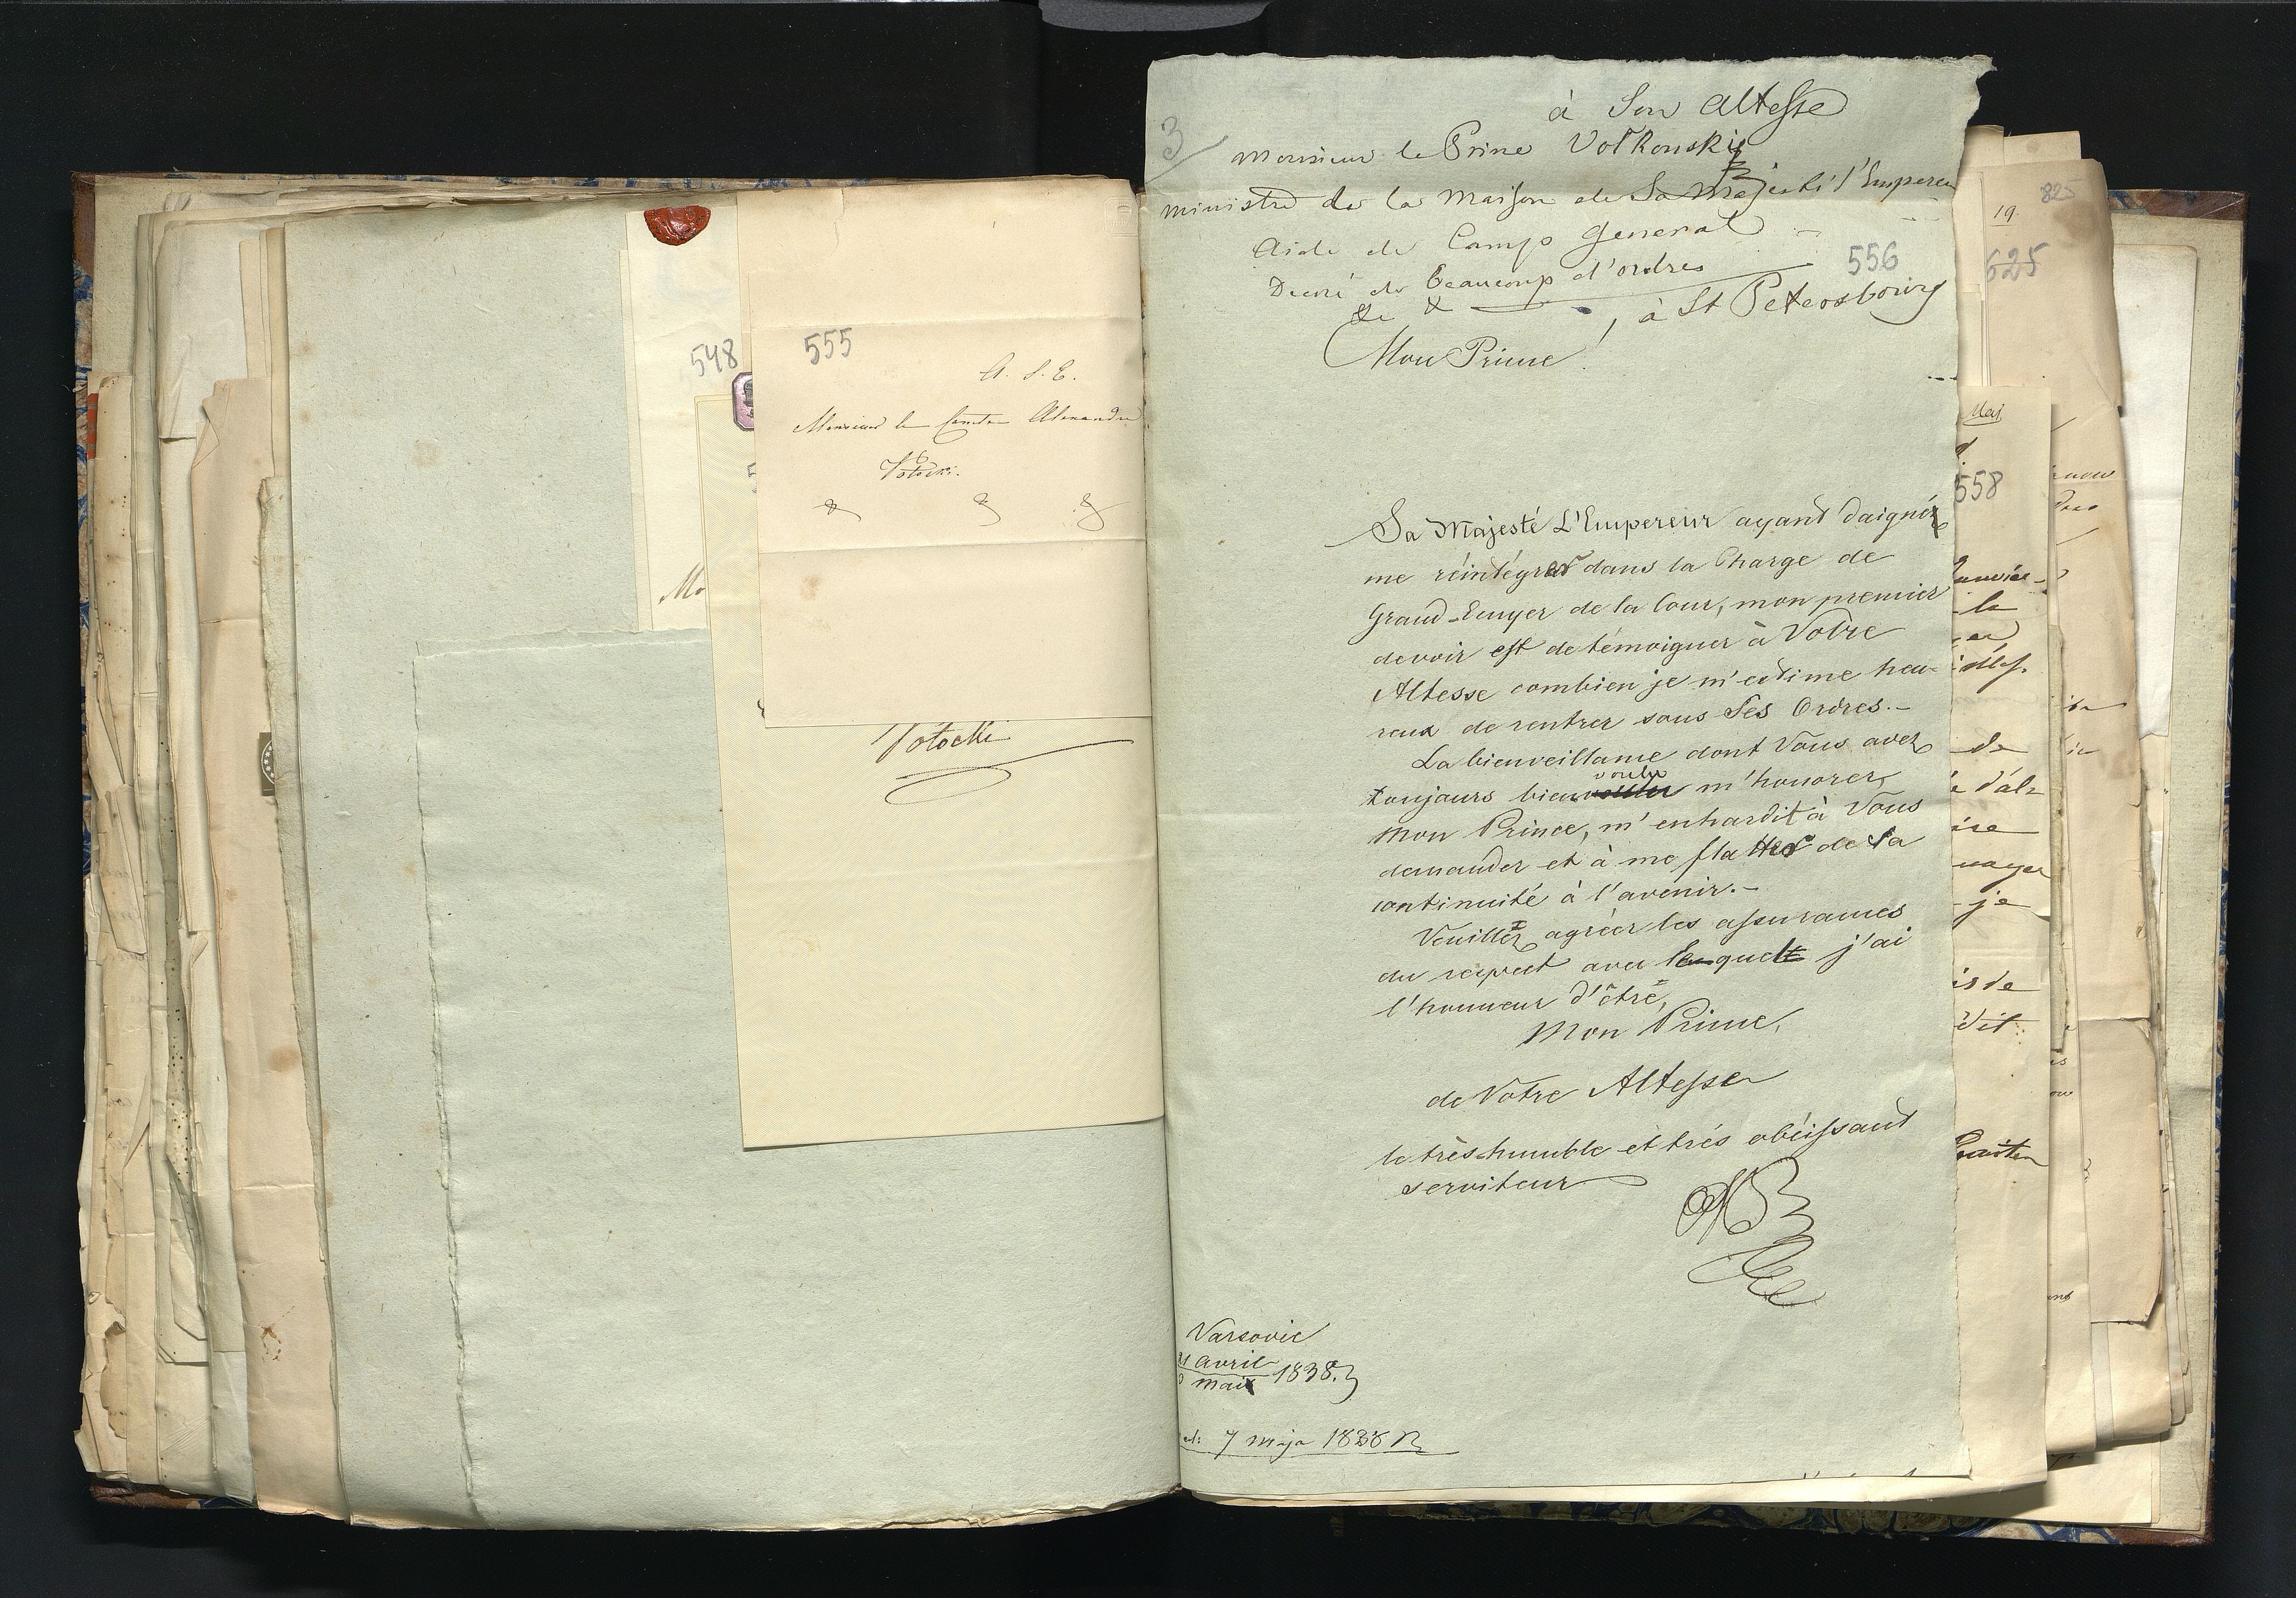 548
555
A. S. E.
Monsieur le Comte Alexandre
Potocki.
Mo
Potocki
3
à Son Altesse
Monsieur le Prince Volkonski
Ministre de la Maison de Sa Majesté l'Empereu
Aide de Camp General
Decoré de beaucoup d'ordres
556
à St Petersbourg
Mon Prince!
Sa Majesté L'Empereur ayant daigné
me réintégrer dans la Charge de
Grand-Ecuyer de la Cour, mon premier
devoir est de témoigner à Votre
Altesse combien je m'estime heu-
reux de rentrer sous Ses Ordres.-
La bienveillance dont Vous avez
toujours bien voulu m'honorer,
Mon Prince, m'enhardit à Vous
demander et à me flatter de sa
continuité à l'avenir.-
Veuillez agréer les assurances
du respect avec lequel j'ai
l'honneur d'être,
Mon Prince,
de Votre Altesse
le très-humble et très obéissant
serviteur
Varsovie
21 avril
mai 1838.
7 maja 1838 R
19.
825
625
Mai
558
la
de
d'al-
je
is de
dit